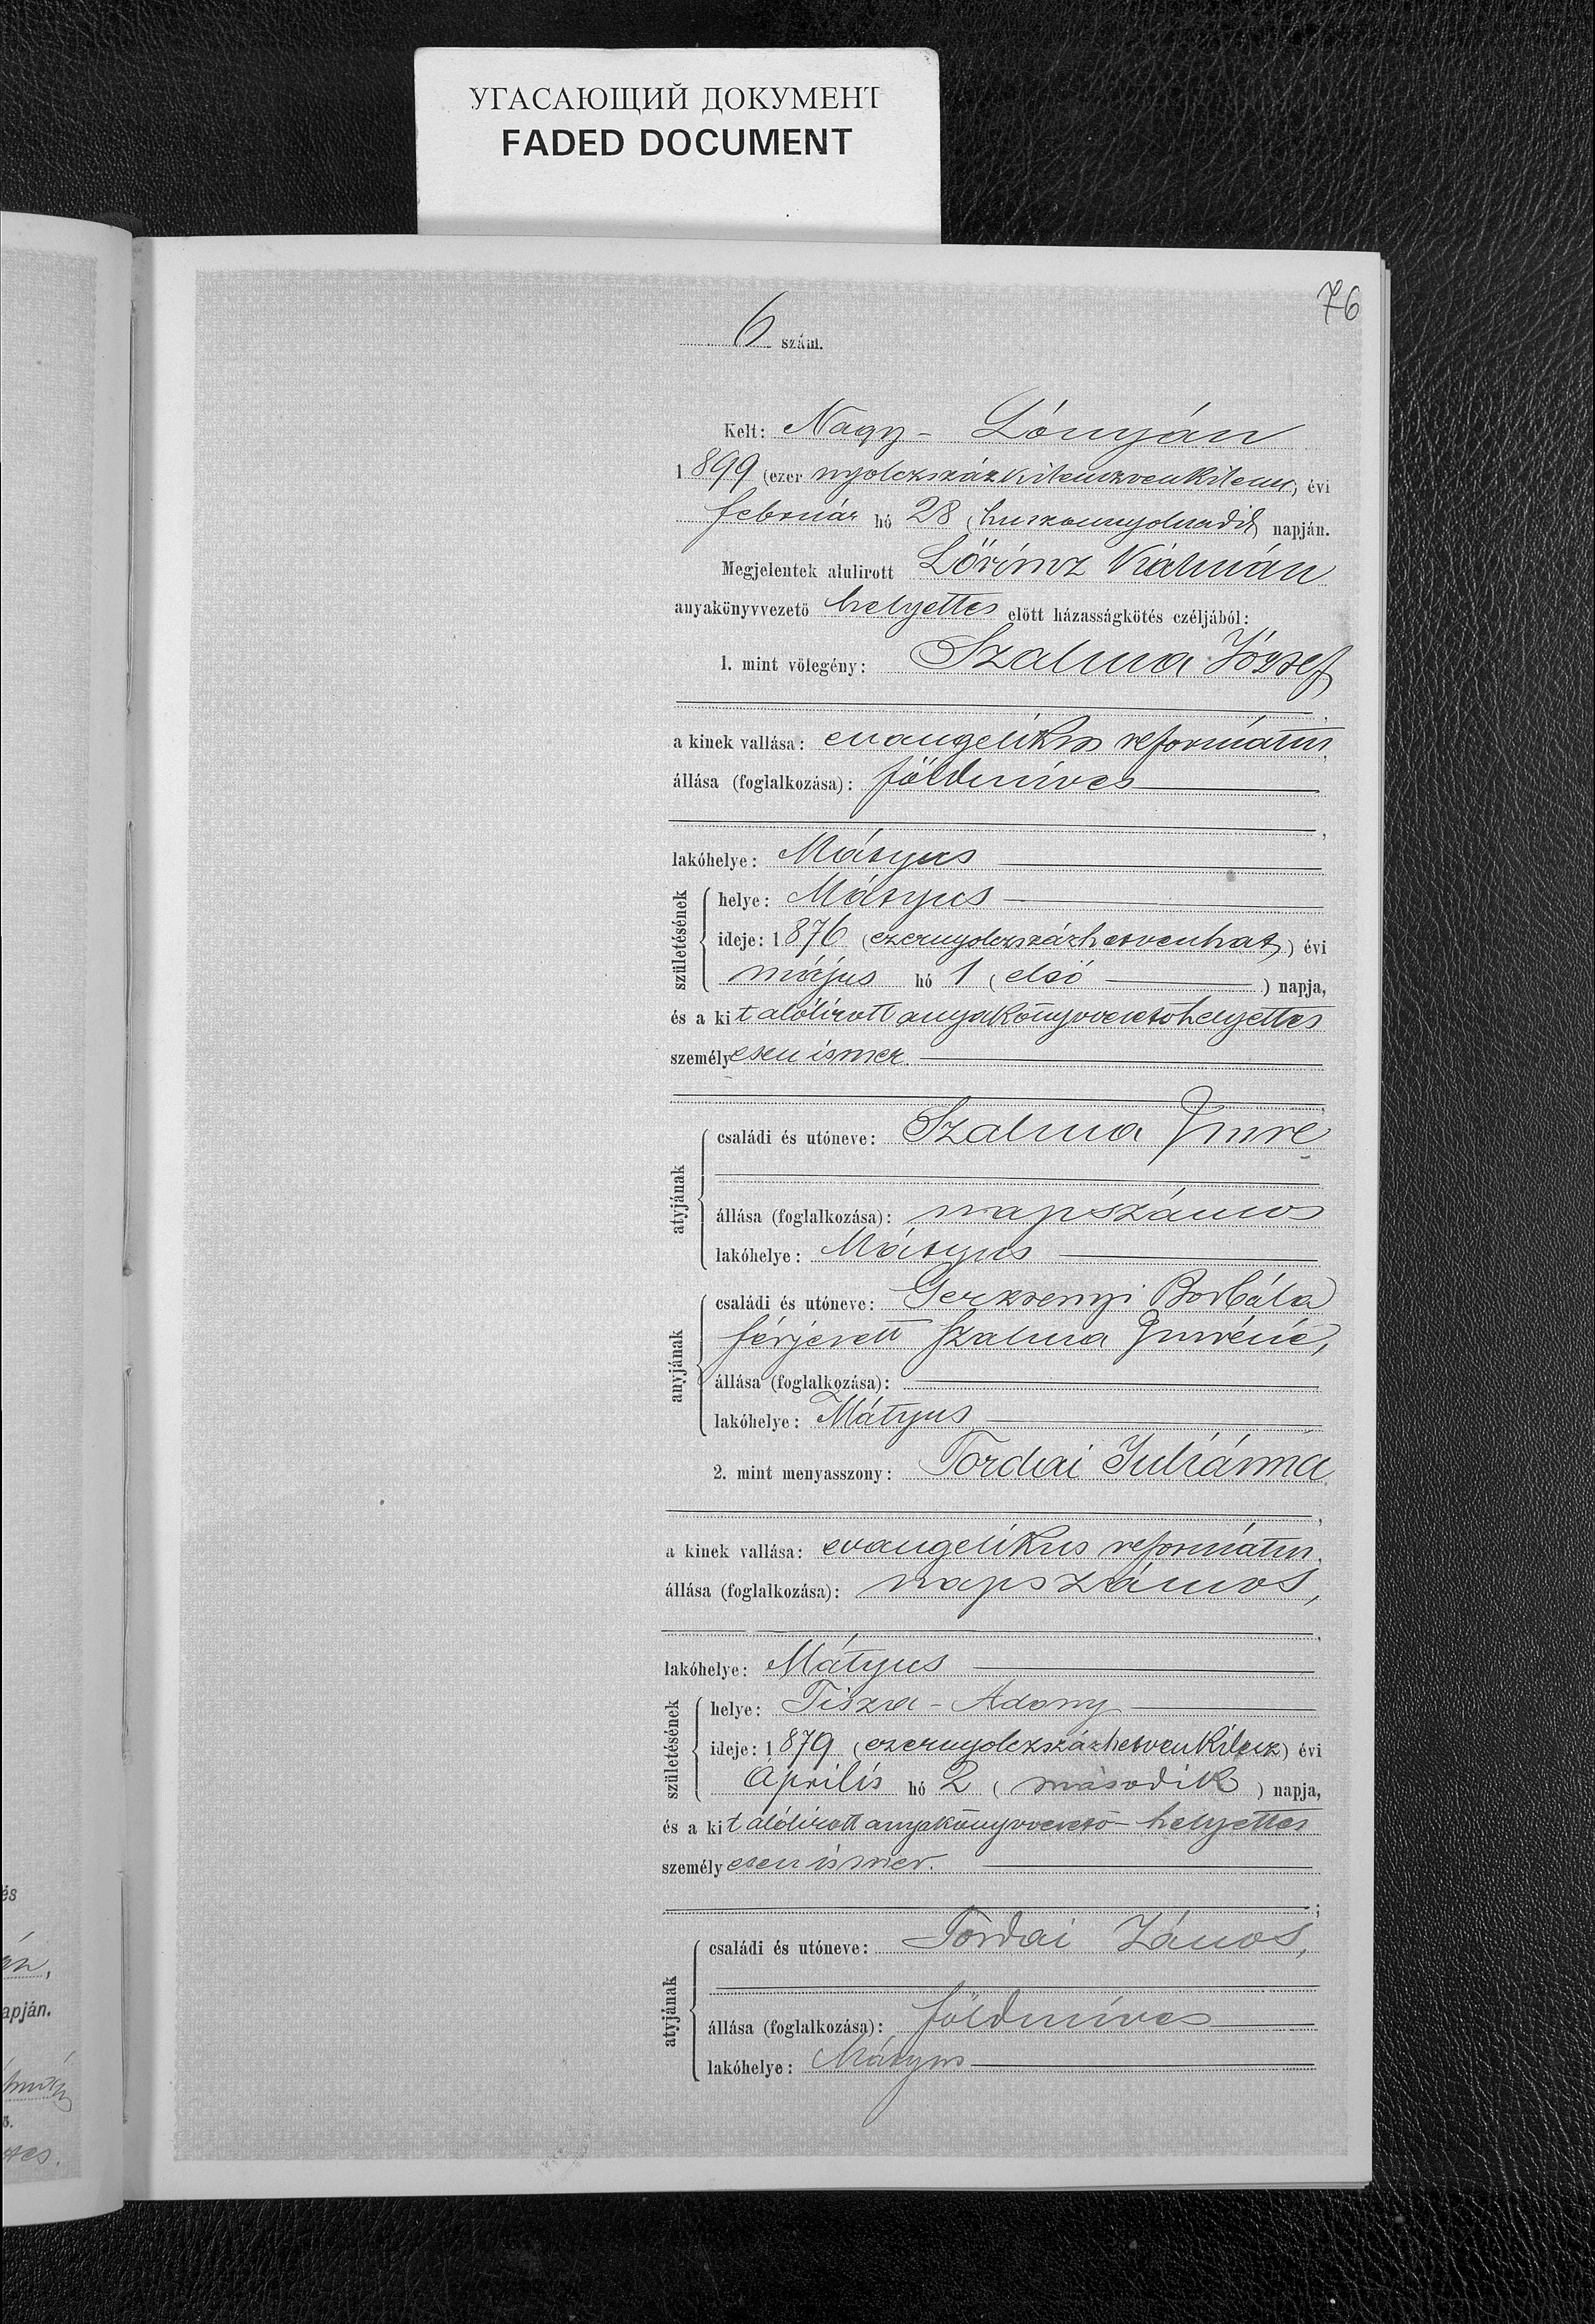 УГАСАЮЩИЙ ДОКУМЕНТ
FADED DOCUMENT
76
6 szám.
Kelt: Nagy-Lónyán
1899 (ezer nyolczszázkilenczvenkilencz) évi
február hó 28 (huszonnyolczadik) napján.
Megjelentek alulirott Lőrincz Kálmán
anyakönyvvezető helyettes előtt házasságkötés czéljából:
1. mint vőlegény: Szalma József
a kinek vallása: evangelikus református,
állása (foglalkozása): földmíves
lakóhelye: Mátyus
születésének
helye: Mátyus
ideje: 1876 (ezernyolczszázhetvenhat) évi
május hó 1 (első) napja,
és a kit alólírott anyakönyvvezetőhelyettes
személyesen ismer.
atyjának
családi és utóneve: Szalma Imre
állása (foglalkozása): napszámos
lakóhelye: Mátyus
anyjának
családi és utóneve: Gerzsenyi Borbála
férjezett Szalma Imréné,
állása (foglalkozása):
lakóhelye: Mátyus
2. mint menyasszony: Tordai Juliánna
a kinek vallása: evangelikus református,
állása (foglalkozása): napszámos,
lakóhelye: Mátyus
születésének
helye: Tisza-Adony
ideje: 1879 (ezernyolczszázhetvenkilencz) évi
április hó 2 (második) napja,
és a kit alólírott anyakönyvvezető-helyettes
személyesen ismer.
atyjának
családi és utóneve: Tordai János,
állása (foglalkozása): földmíves
lakóhelye: Mátyus
és
án,
apján.